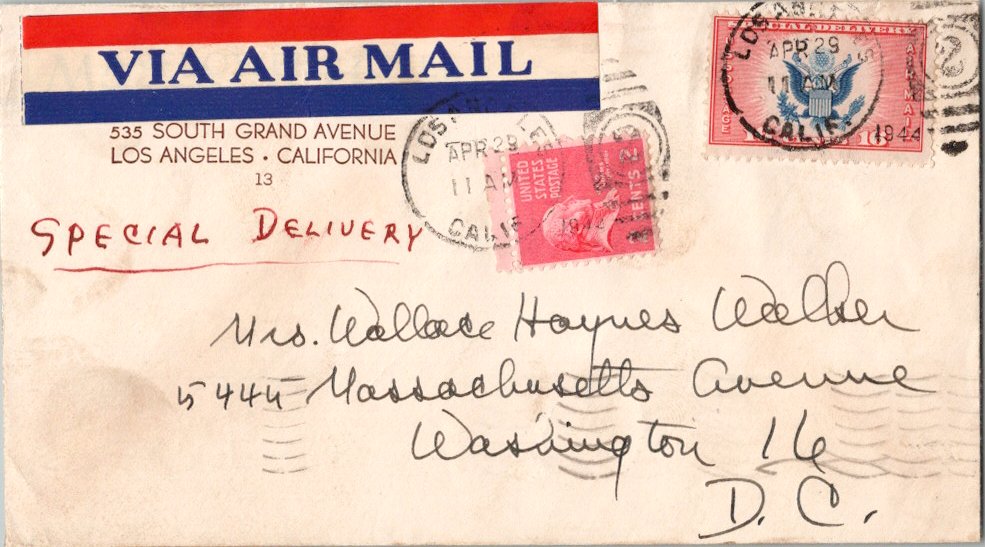 VIA AIR MAIL
535 SOUTH GRAND AVENUE
LOS ANGELES · CALIFORNIA
13
SPECIAL DELIVERY
LOS ANGELES
APR 29
11 AM
CALIF.
1944
UNITED
STATES
POSTAGE
CENTS 2
LOS ANGELES
APR 29
11 AM
CALIF.
1944
AIR MAIL
Mrs. Wallace Haynes Walker
5445 Massachusetts Avenue
Washington 16
D. C.